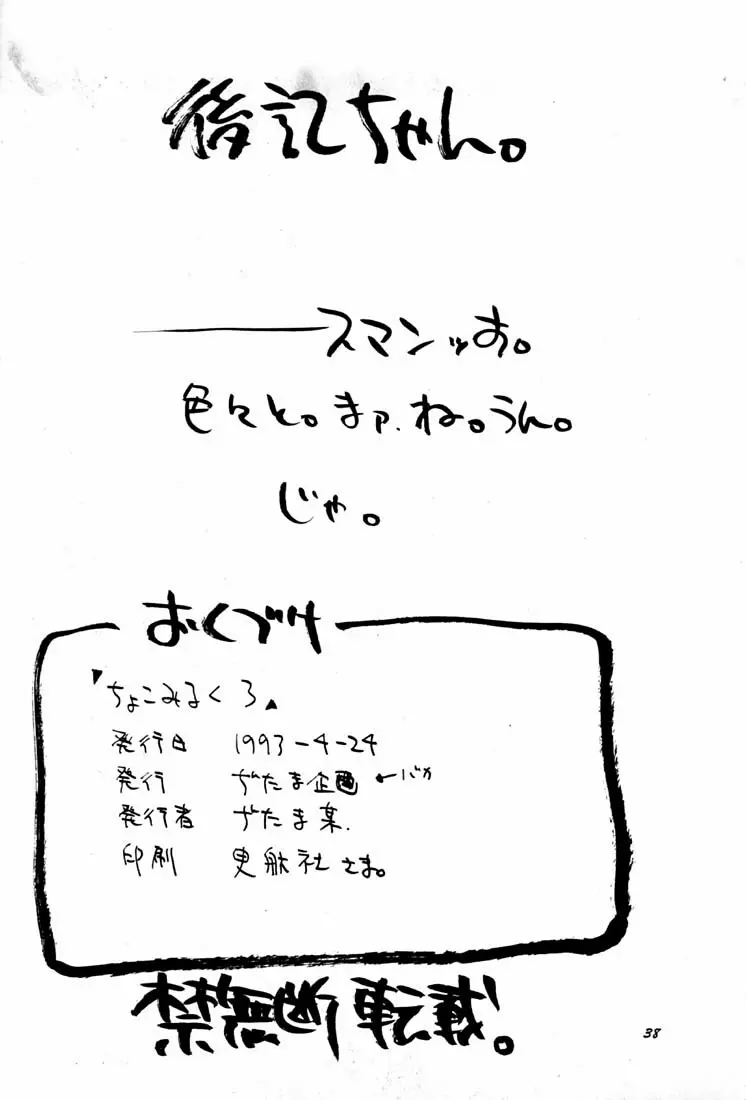 後記ちゃん。
───スマンッす。
色々と。まァ、ね。うん。
じゃ。
おくづけ
「ちょこみるく 3」
発行日 1993-4-24
発行 ぢたま企画 ←バカ
発行者 ぢたま某.
印刷 更航社さま。
禁無断転載。
38